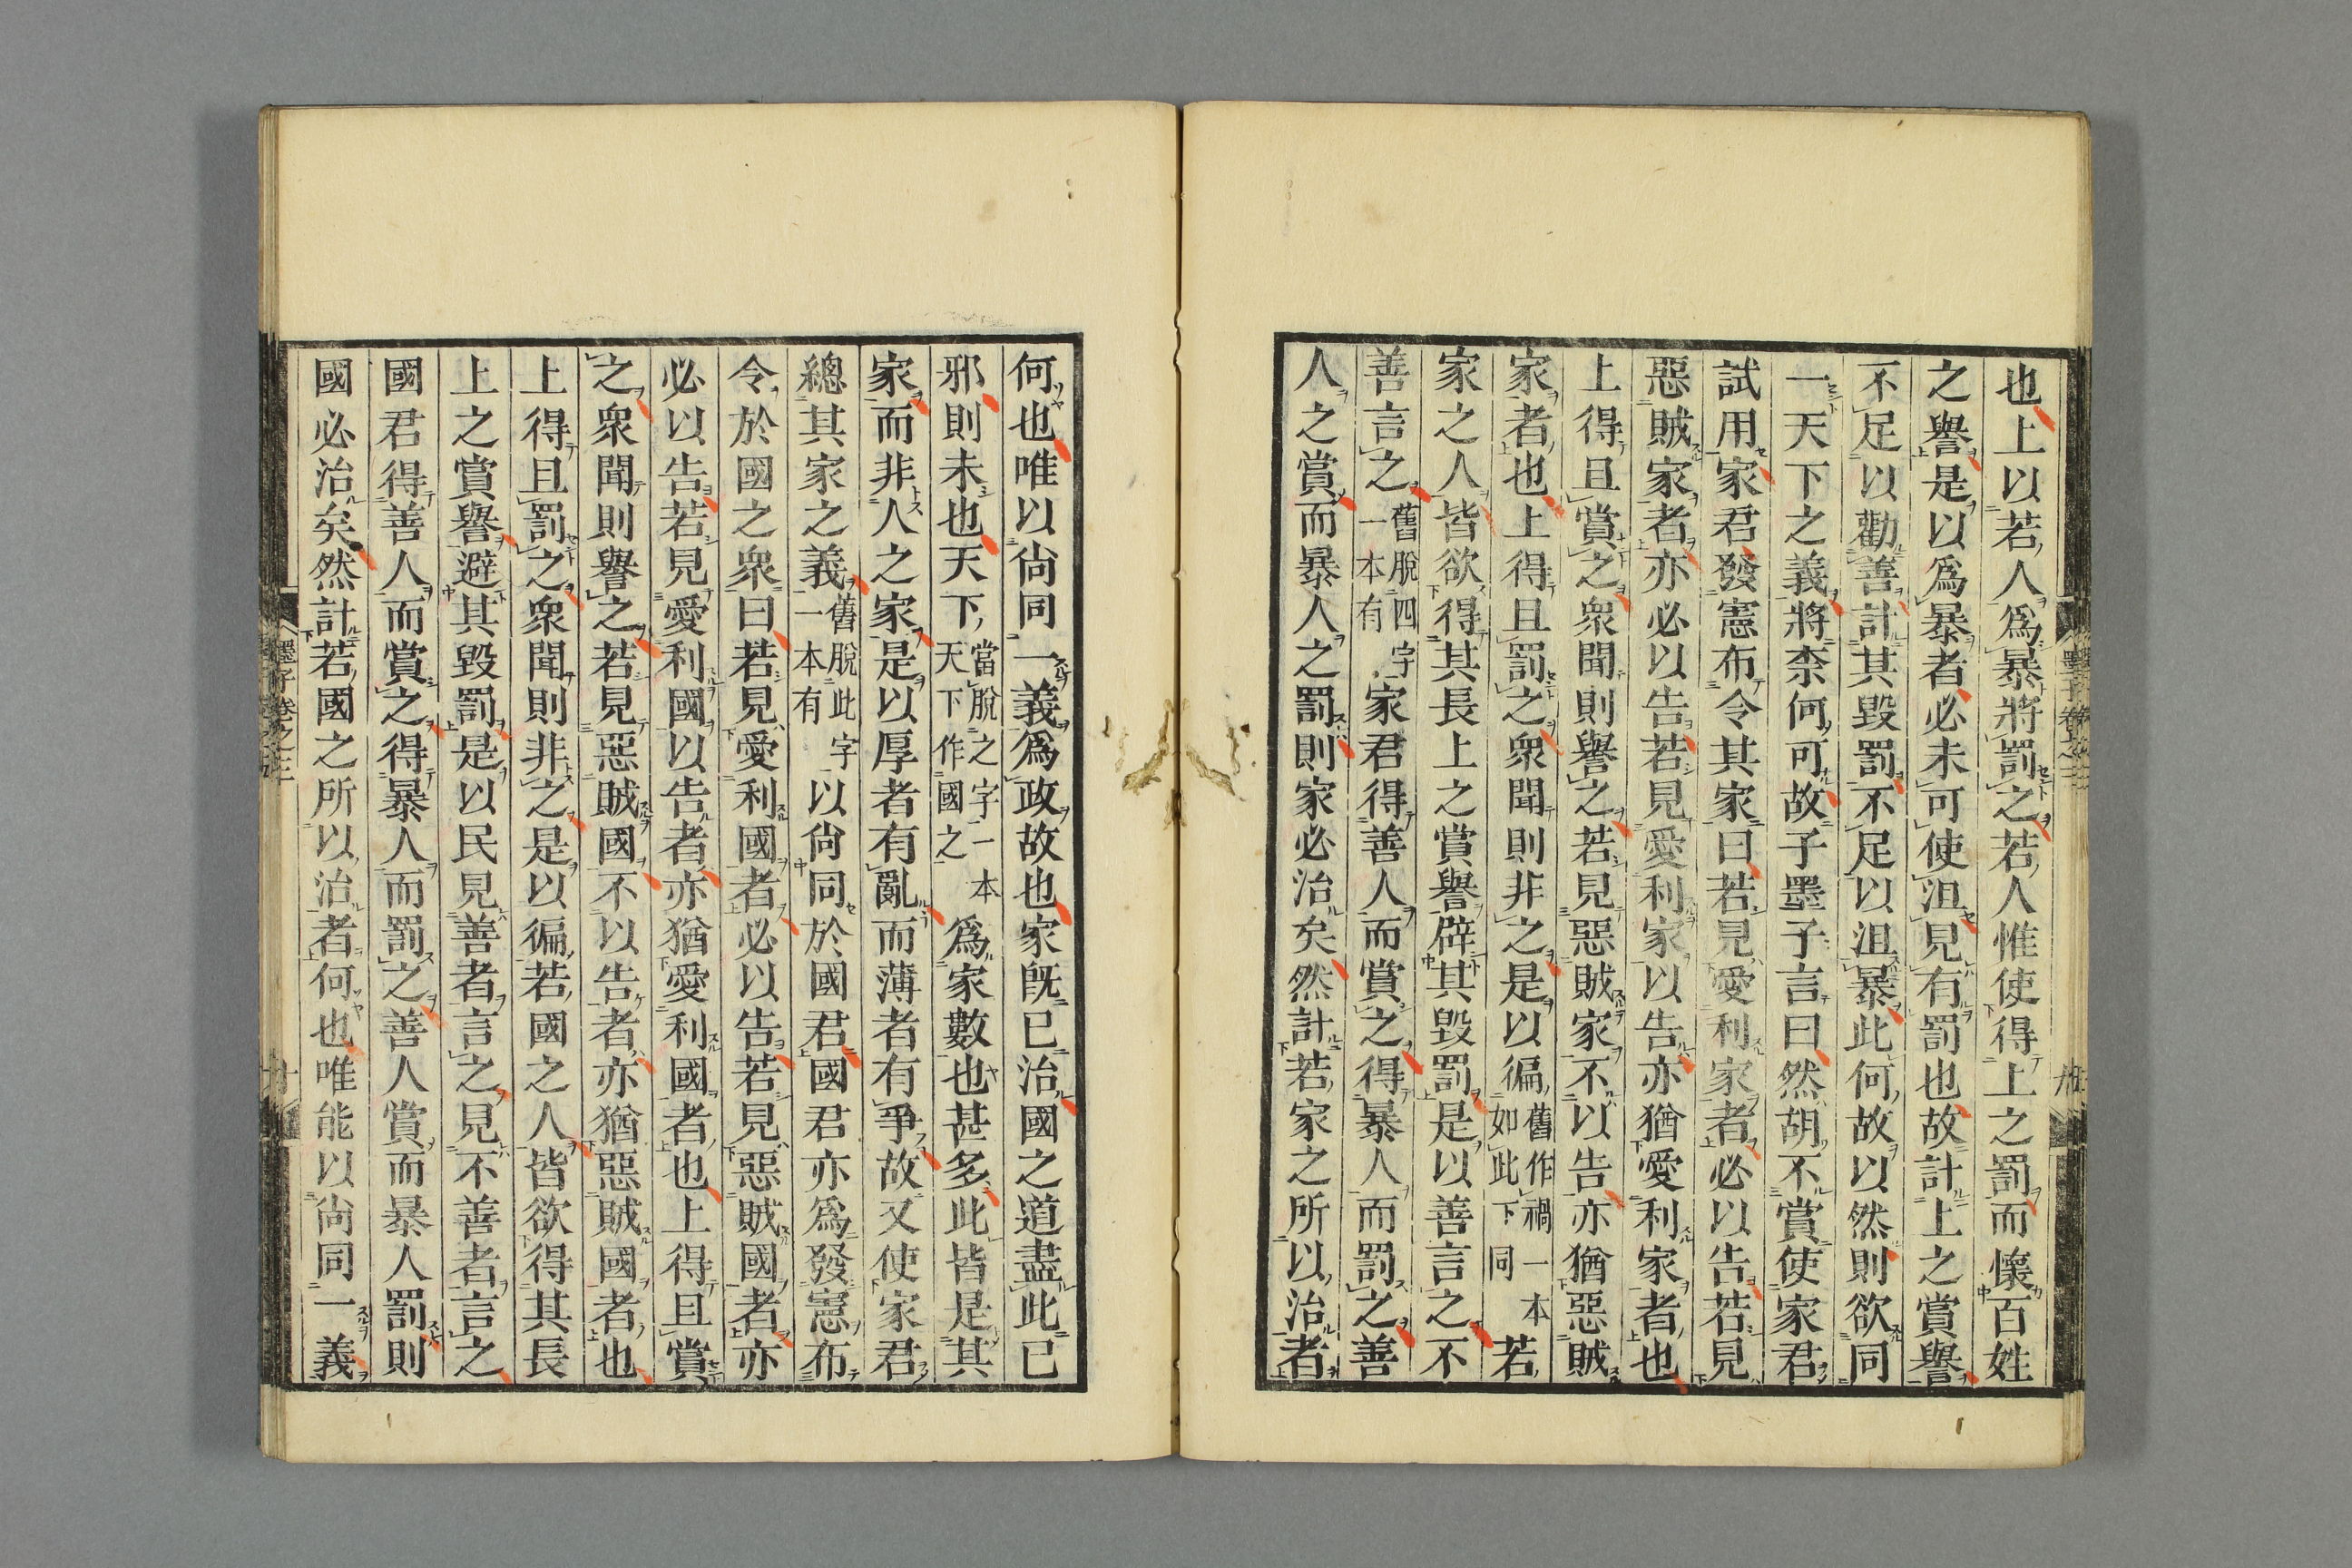 也上以若人爲暴將罰之若人惟使得上之罰而懷百姓
之譽是以爲暴者必未可使沮見有罰也故計上之賞譽
不足以勸善計其毀罰不足以沮暴此何故以然則欲同
一天下之義將柰何可故子墨子言曰然胡不賞使家君
試用家君發憲布令其家曰若見愛利家者必以告若見
惡賊家者亦必以告若見愛利家以告亦猶愛利家者也
上得且賞之衆聞則譽之若見惡賊家不以告亦猶惡賊
家者也上得且罰之衆聞則非之是以徧舊作禍一本如此下同若
家之人皆欲得其長上之賞譽辟其毀罰是以善言之不
善言之舊脫四字一本有家君得善人而賞之得暴人而罰之善
人之賞而暴人之罰則家必治矣然計若家之所以治者
何也唯以尙同一義爲政故也家旣已治國之道盡此已
邪則未也天下當脫之字一本天下作國之爲家數也甚多此皆是其
家而非人之家是以厚者有亂而薄者有爭故又使家君
總其家之義舊脫此字一本有以尙同於國君國君亦爲發憲布
令於國之衆曰若見愛利國者必以告若見惡賊國者亦
必以告若見愛利國以告者亦猶愛利國者也上得且賞
之衆聞則譽之若見惡賊國不以告者亦猶惡賊國者也
上得且罰之衆聞則非之是以徧若國之人皆欲得其長
上之賞譽避其毀罰是以民見善者言之見不善者言之
國君得善人而賞之得暴人而罰之善人賞而暴人罰則
國必治矣然計若國之所以治者何也唯能以尙同一義
墨子卷之三
十